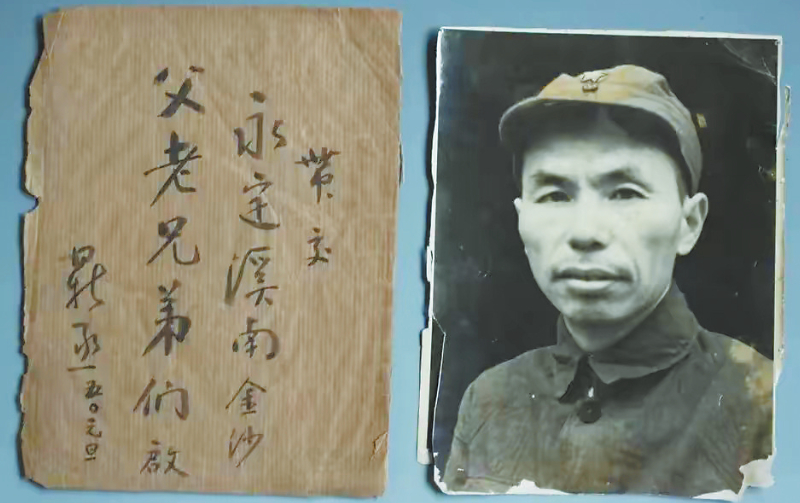 带交
永定溪南金沙
父老兄弟们启
鼎丞 一九五〇元旦